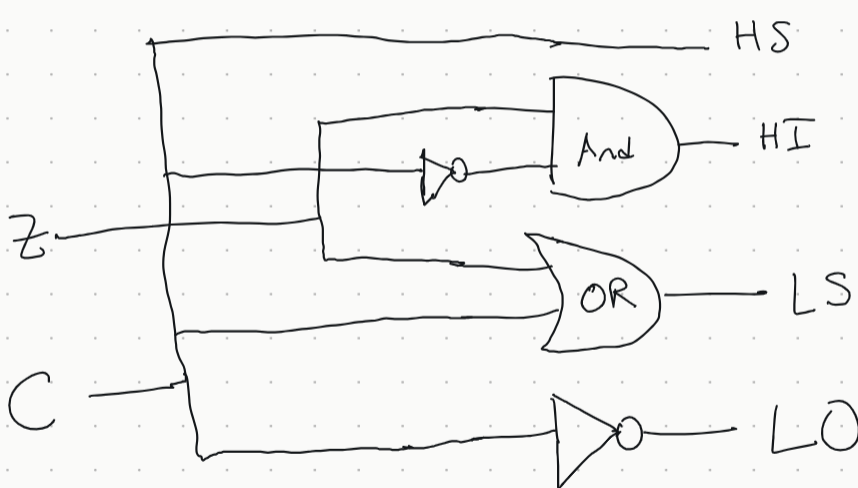 HS
And
HI
Z
OR
LS
C
LO